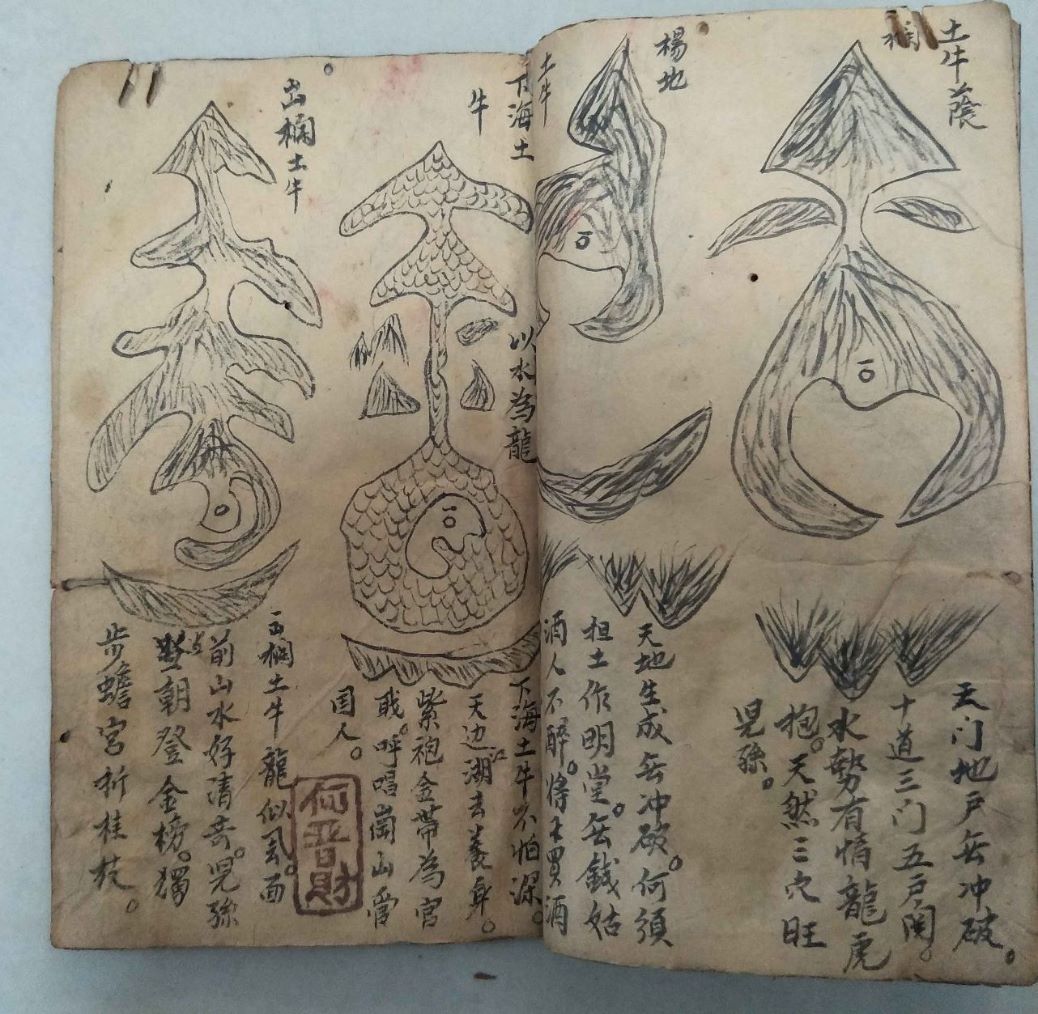 土牛蔭
欄
天门地户無冲破。
十道三门五户関。
水勢有情龍虎
抱。天然三穴旺
児孫。
楊地
土牛
天地生成無冲破。何須
担土作明堂。無錢姑
酒人不醉。将土買酒
下海土
牛
以水為龍
下海土牛不怕深。
天边江湖去養身。
紫袍金帶為官
職。呼唱崗山管
国人。
出欄土牛
出欄土牛龍似飛。面
前山水好清奇。児孫
朝登金榜。獨
步蟾宮折桂枝。
何晋財